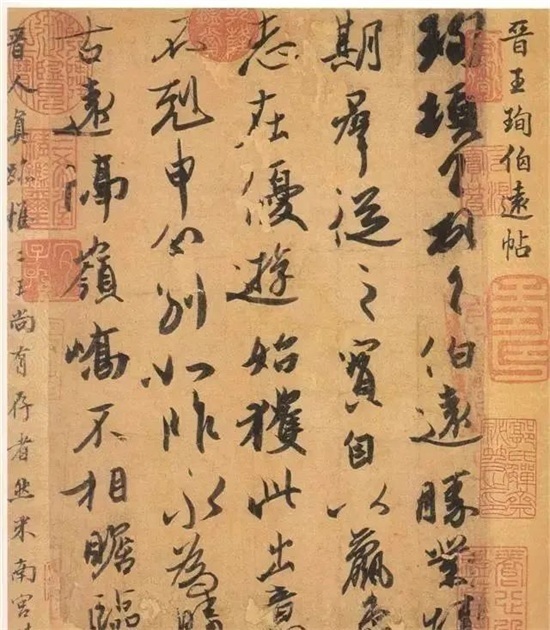 晉王珣伯遠帖
珣頓首頓首伯遠勝業情
期羣從之寶自以羸患
志在優遊始獲此出意
不剋申分别如昨永為疇
古遠隔嶺嶠不相瞻臨
晉人真跡惟二王尚有存者然米南宮